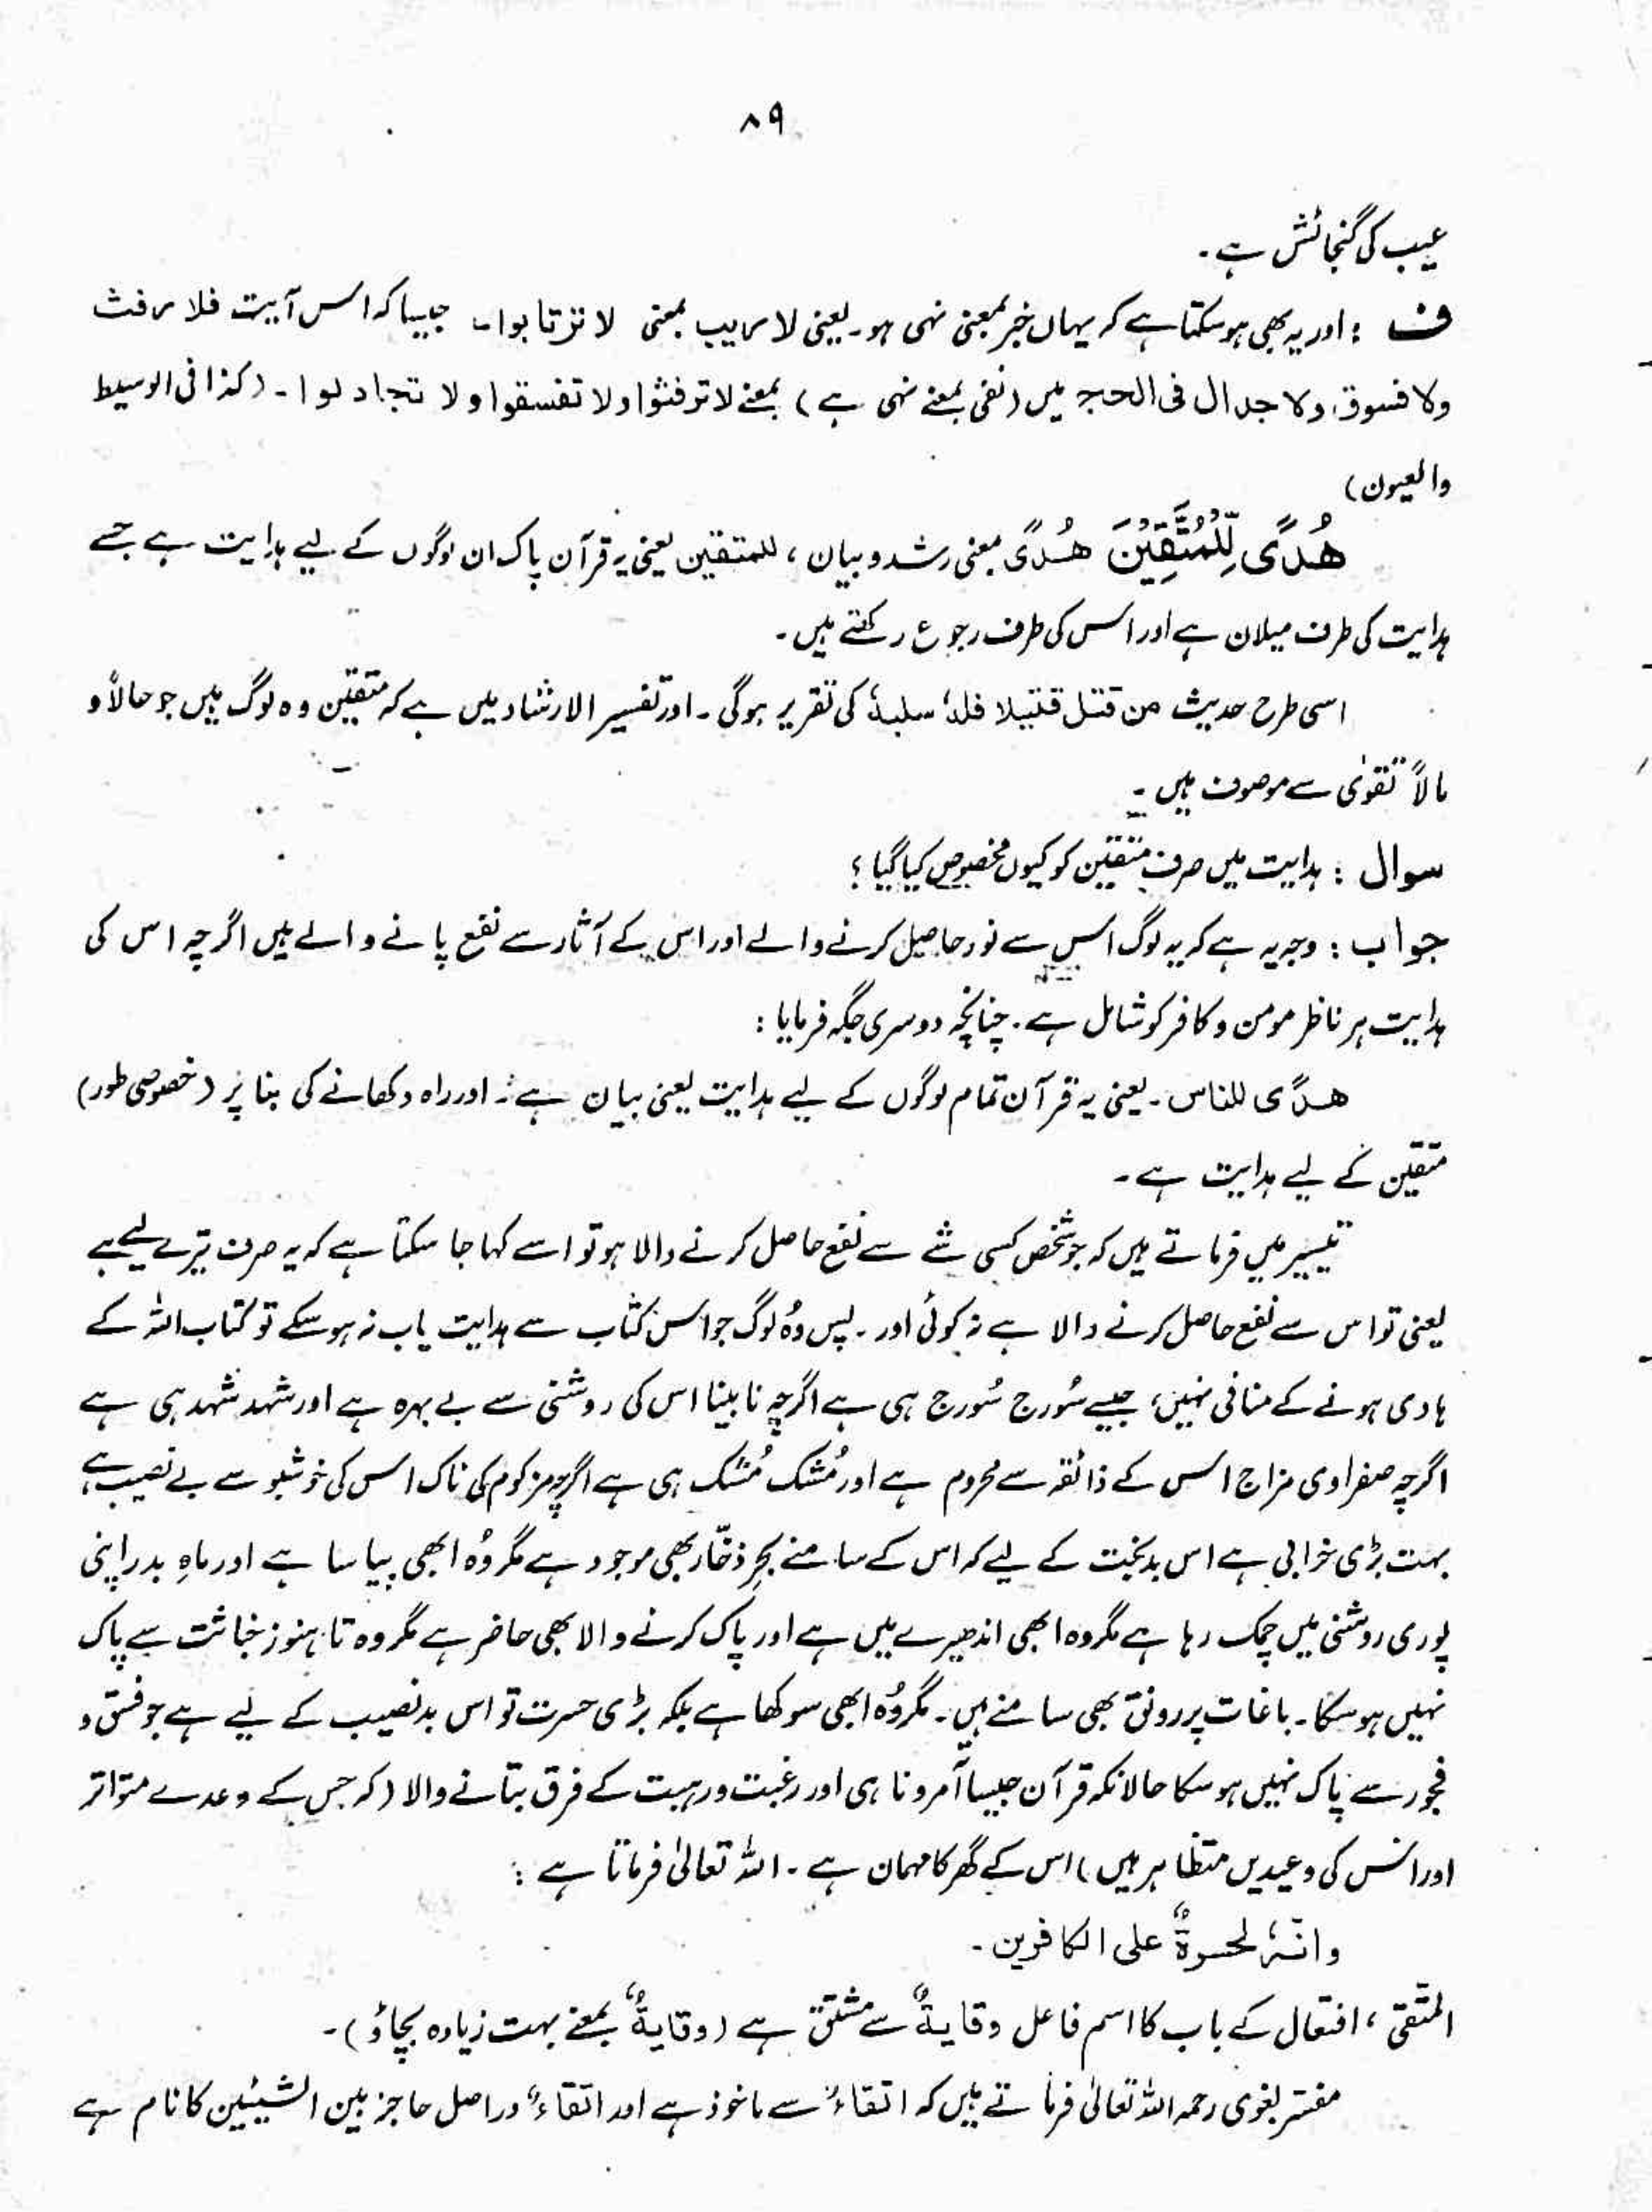 ۸۹
عیب کی گنجائش ہے۔
ف : اور یہ بھی ہو سکتا ہے کہ یہاں خبر بمعنی نہی ہو۔ یعنی لا ریب بمعنی لا ترتابوا۔ جیسا کہ اس آیت فلا رفث
ولا فسوق ولا جدال فی الحج میں (نفی بمعنے نہی ہے) بمعنے لا ترفثوا ولا تفسقوا ولا تجادلوا۔ (کذا فی الوسیط
والعیون)
ھُدًی لِّلْمُتَّقِیْنَ ھُدًی بمعنی رشد و بیان ، للمتقین یعنی یہ قرآن پاک ان لوگوں کے لیے ہدایت ہے جسے
ہدایت کی طرف میلان ہے اور اس کی طرف رجوع رکھتے ہیں۔
اسی طرح حدیث من قتل قتیلا فلہٗ سلبہٗ کی تقریر ہوگی۔ اور تفسیر الارشاد میں ہے کہ متقین وہ لوگ ہیں جو حالاً و
مالاً تقوٰی سے موصوف ہیں۔
سوال : ہدایت میں صرف متقین کو کیوں مخصوص کیا گیا ؟
جواب : وجہ یہ ہے کہ یہ لوگ اس سے نور حاصل کرنے والے اور اس کے آثار سے نفع پانے والے ہیں اگرچہ اس کی
ہدایت ہر ناظر مومن و کافر کو شامل ہے۔ چنانچہ دوسری جگہ فرمایا :
ھدًی للناس۔ یعنی یہ قرآن تمام لوگوں کے لیے ہدایت یعنی بیان ہے۔ اور راہ دکھانے کی بنا پر (خصوصی طور)
متقین کے لیے ہدایت ہے۔
تیسیر میں فرماتے ہیں کہ جو شخص کسی شے سے نفع حاصل کرنے والا ہو تو اسے کہا جا سکتا ہے کہ یہ صرف تیرے لیے ہے
یعنی تو اس سے نفع حاصل کرنے والا ہے نہ کوئی اور۔ پس وُہ لوگ جو اس کتاب سے ہدایت یاب نہ ہو سکے تو کتاب اللہ کے
ہادی ہونے کے منافی نہیں، جیسے سُورج سُورج ہی ہے اگرچہ نابینا اس کی روشنی سے بے بہرہ ہے اور شہد شہد ہی ہے
اگرچہ صفراوی مزاج اس کے ذائقہ سے محروم ہے اور مُشک مُشک ہی ہے اگرچہ مزکوم کی ناک اس کی خوشبو سے بے نصیب ہے،
بہت بڑی خرابی ہے اس بدبخت کے لیے کہ اس کے سامنے بحرِ ذخّار بھی موجود ہے مگر وُہ ابھی پیاسا ہے اور ماہِ بدر اپنی
پوری روشنی میں چمک رہا ہے مگر وہ ابھی اندھیرے میں ہے اور پاک کرنے والا بھی حاضر ہے مگر وہ تا ہنوز خباثت سے پاک
نہیں ہو سکا۔ باغات پر رونق بھی سامنے ہیں۔ مگر وُہ ابھی سوکھا ہے بلکہ بڑی حسرت تو اس بدنصیب کے لیے ہے جو فسق و
فجور سے پاک نہیں ہو سکا حالانکہ قرآن جیسا آمر و ناہی اور رغبت و رہبت کے فرق بتانے والا (کہ جس کے وعدے متواتر
اور اس کی وعیدیں متظاہر ہیں) اس کے گھر کا مہمان ہے۔ اللہ تعالیٰ فرماتا ہے :
وانّہٗ لحسرۃٌ علی الکافرین۔
المتّقی ، افتعال کے باب کا اسم فاعل وقایۃٌ سے مشتق ہے (وقایۃٌ بمعنے بہت زیادہ بچاؤ)۔
مفسّر بغوی رحمہ اللہ تعالیٰ فرماتے ہیں کہ اتقاءٌ سے ماخوذ ہے اور اتقاءٌ دراصل حاجز بین الشیئین کا نام ہے